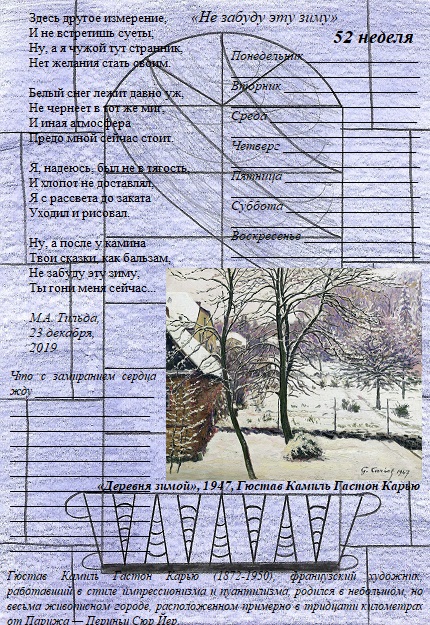 «Не забуду эту зиму»
52 неделя
Здесь другое измерение,
И не встретишь суеты,
Ну, а я чужой тут странник,
Нет желания стать своим.
Белый снег лежит давно уж,
Не чернеет в тот же миг,
И иная атмосфера
Предо мной сейчас стоит.
Я, надеюсь, был не в тягость,
И хлопот не доставлял,
Я с рассвета до заката
Уходил и рисовал.
Ну, а после у камина
Твои сказки, как бальзам,
Не забуду эту зиму,
Ты гони меня сейчас...
М.А. Тильда,
23 декабря,
2019
Понедельник
Вторник
Среда
Четверг
Пятница
Суббота
Воскресенье
Что с замиранием сердца
жду
G. Cariot 1947
«Деревня зимой», 1947, Гюстав Камиль Гастон Карью
Гюстав Камиль Гастон Карью (1872-1950), французский художник,
работавший в стиле импрессионизма и пуантилизма, родился в небольшом, но
весьма живописном городе, расположенном примерно в тридцати километрах
от Парижа — Периньи Сюр Йер.